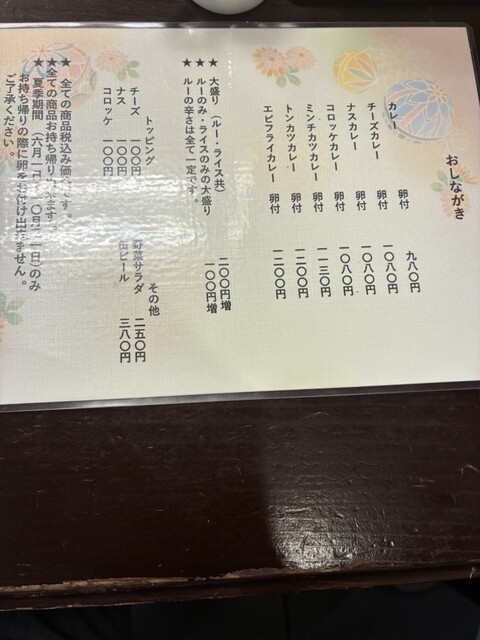 おしながき
カレー 卵付 九八〇円
チーズカレー 卵付 一〇八〇円
ナスカレー 卵付 一〇八〇円
コロッケカレー 卵付 一〇八〇円
ミンチカツカレー 卵付 一一三〇円
トンカツカレー 卵付 一二〇〇円
エビフライカレー 卵付 一二〇〇円
★ 大盛り（ルー・ライス共） 二〇〇円増
★ ルーのみ・ライスのみの大盛り 一〇〇円増
★ ルーの辛さは全て一定です。
トッピング
チーズ 一〇〇円
ナス 一〇〇円
コロッケ 一〇〇円
その他
野菜サラダ 二五〇円
缶ビール 三八〇円
★ 全ての商品税込み価格です。
★全ての商品お持ち帰りできます。
★ 夏季期間（六月一日 一〇月 一日）のみ
お持ち帰りの際に卵をお付け出来ません。
ご了承ください。